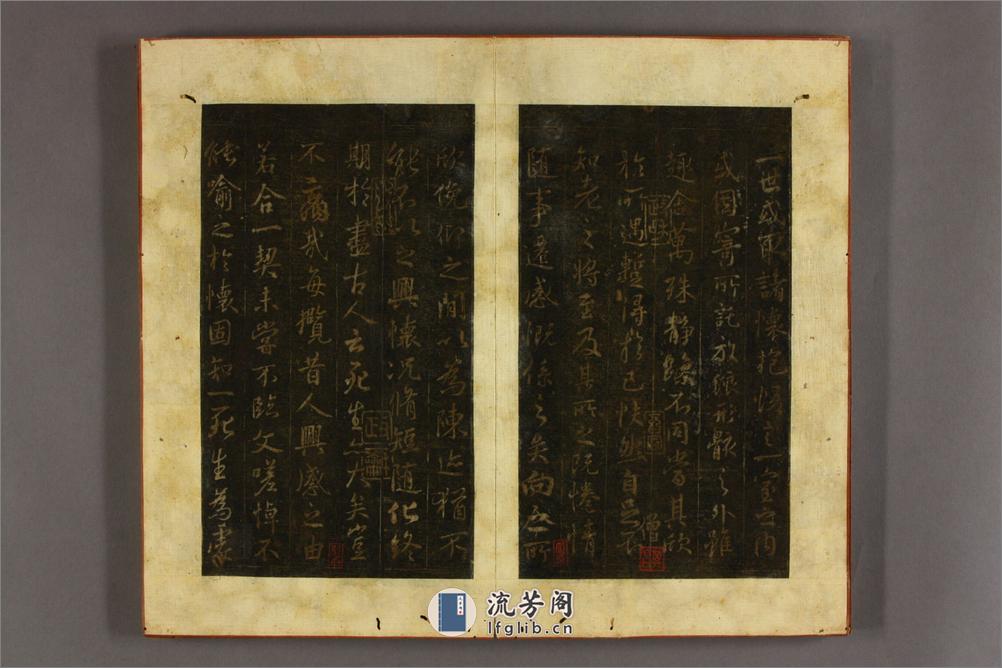 一世或取諸懷抱悟言一室之內
或因寄所託放浪形骸之外雖
趣舍萬殊靜躁不同當其欣
於所遇暫得於己快然自足不
知老之將至及其所之既惓情
隨事遷感慨係之矣向之所
欣俛仰之間以為陳迹猶不
能不以之興懷況脩短隨化終
期於盡古人云死生亦大矣豈
不痛哉每攬昔人興感之由
若合一契未嘗不臨文嗟悼不
能喻之於懷固知一死生為虛
流芳阁
lfglib.cn